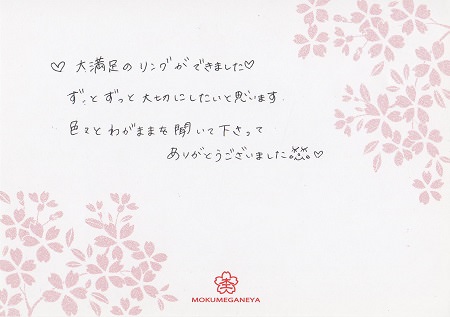 ♡ 大満足のリングができました♡
ずっとずっと大切にしたいと思います。
色々とわがままを聞いて下さって
ありがとうございました ♡
MOKUMEGANEYA